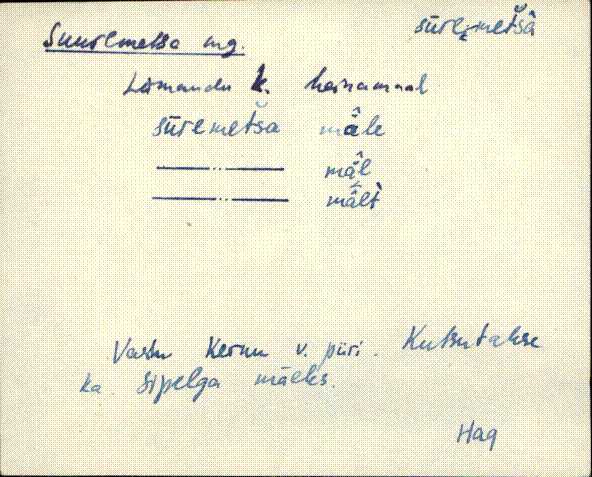 Suuremetsa mg.
sūremetšâ
Lümandu k. heinamaal
sūremetša mä̂le
—..— mä̂l
—..— mä̂lt
Vastu Kernu v. piiri. Kutsutakse
ka Sipelga mäeks.
Hag